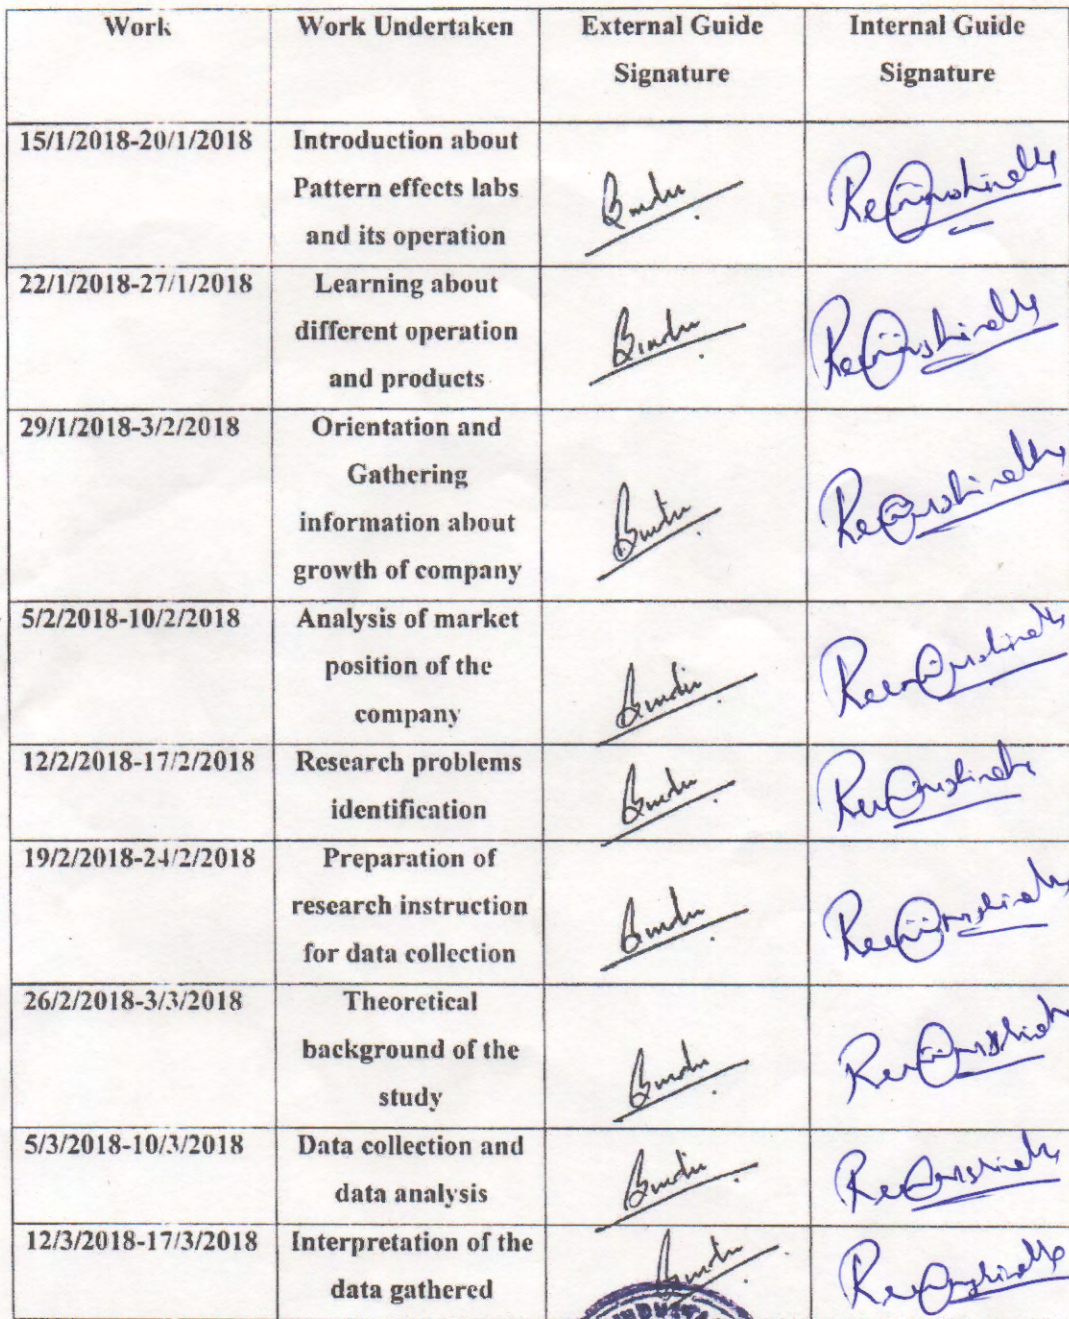 Work
Work Undertaken
External Guide
Signature
Internal Guide
Signature
15/1/2018-20/1/2018
Introduction about
Pattern effects labs
and its operation
Bindu
22/1/2018-27/1/2018
Learning about
different operation
and products
Bindu
29/1/2018-3/2/2018
Orientation and
Gathering
information about
growth of company
Bindu
5/2/2018-10/2/2018
Analysis of market
position of the
company
Bindu
12/2/2018-17/2/2018
Research problems
identification
Bindu
19/2/2018-24/2/2018
Preparation of
research instruction
for data collection
Bindu
26/2/2018-3/3/2018
Theoretical
background of the
study
Bindu
5/3/2018-10/3/2018
Data collection and
data analysis
Bindu
12/3/2018-17/3/2018
Interpretation of the
data gathered
Bindu